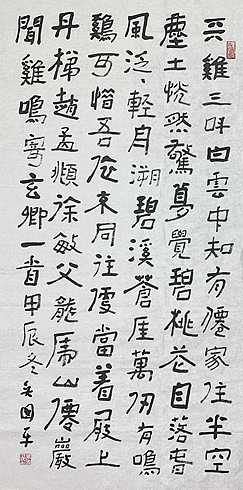 兲雞三叫白雲中知有僊家住半空
塵土恍然驚夢覺碧桃花自落春
風泛〻輕舟溯碧溪蒼厓萬仞有鳴
鷄可惜吾来同往便當着屐上
丹梯趙孟頫徐敏父龍虎山僊巖
聞雞鳴寄玄卿一首甲辰冬吴國平